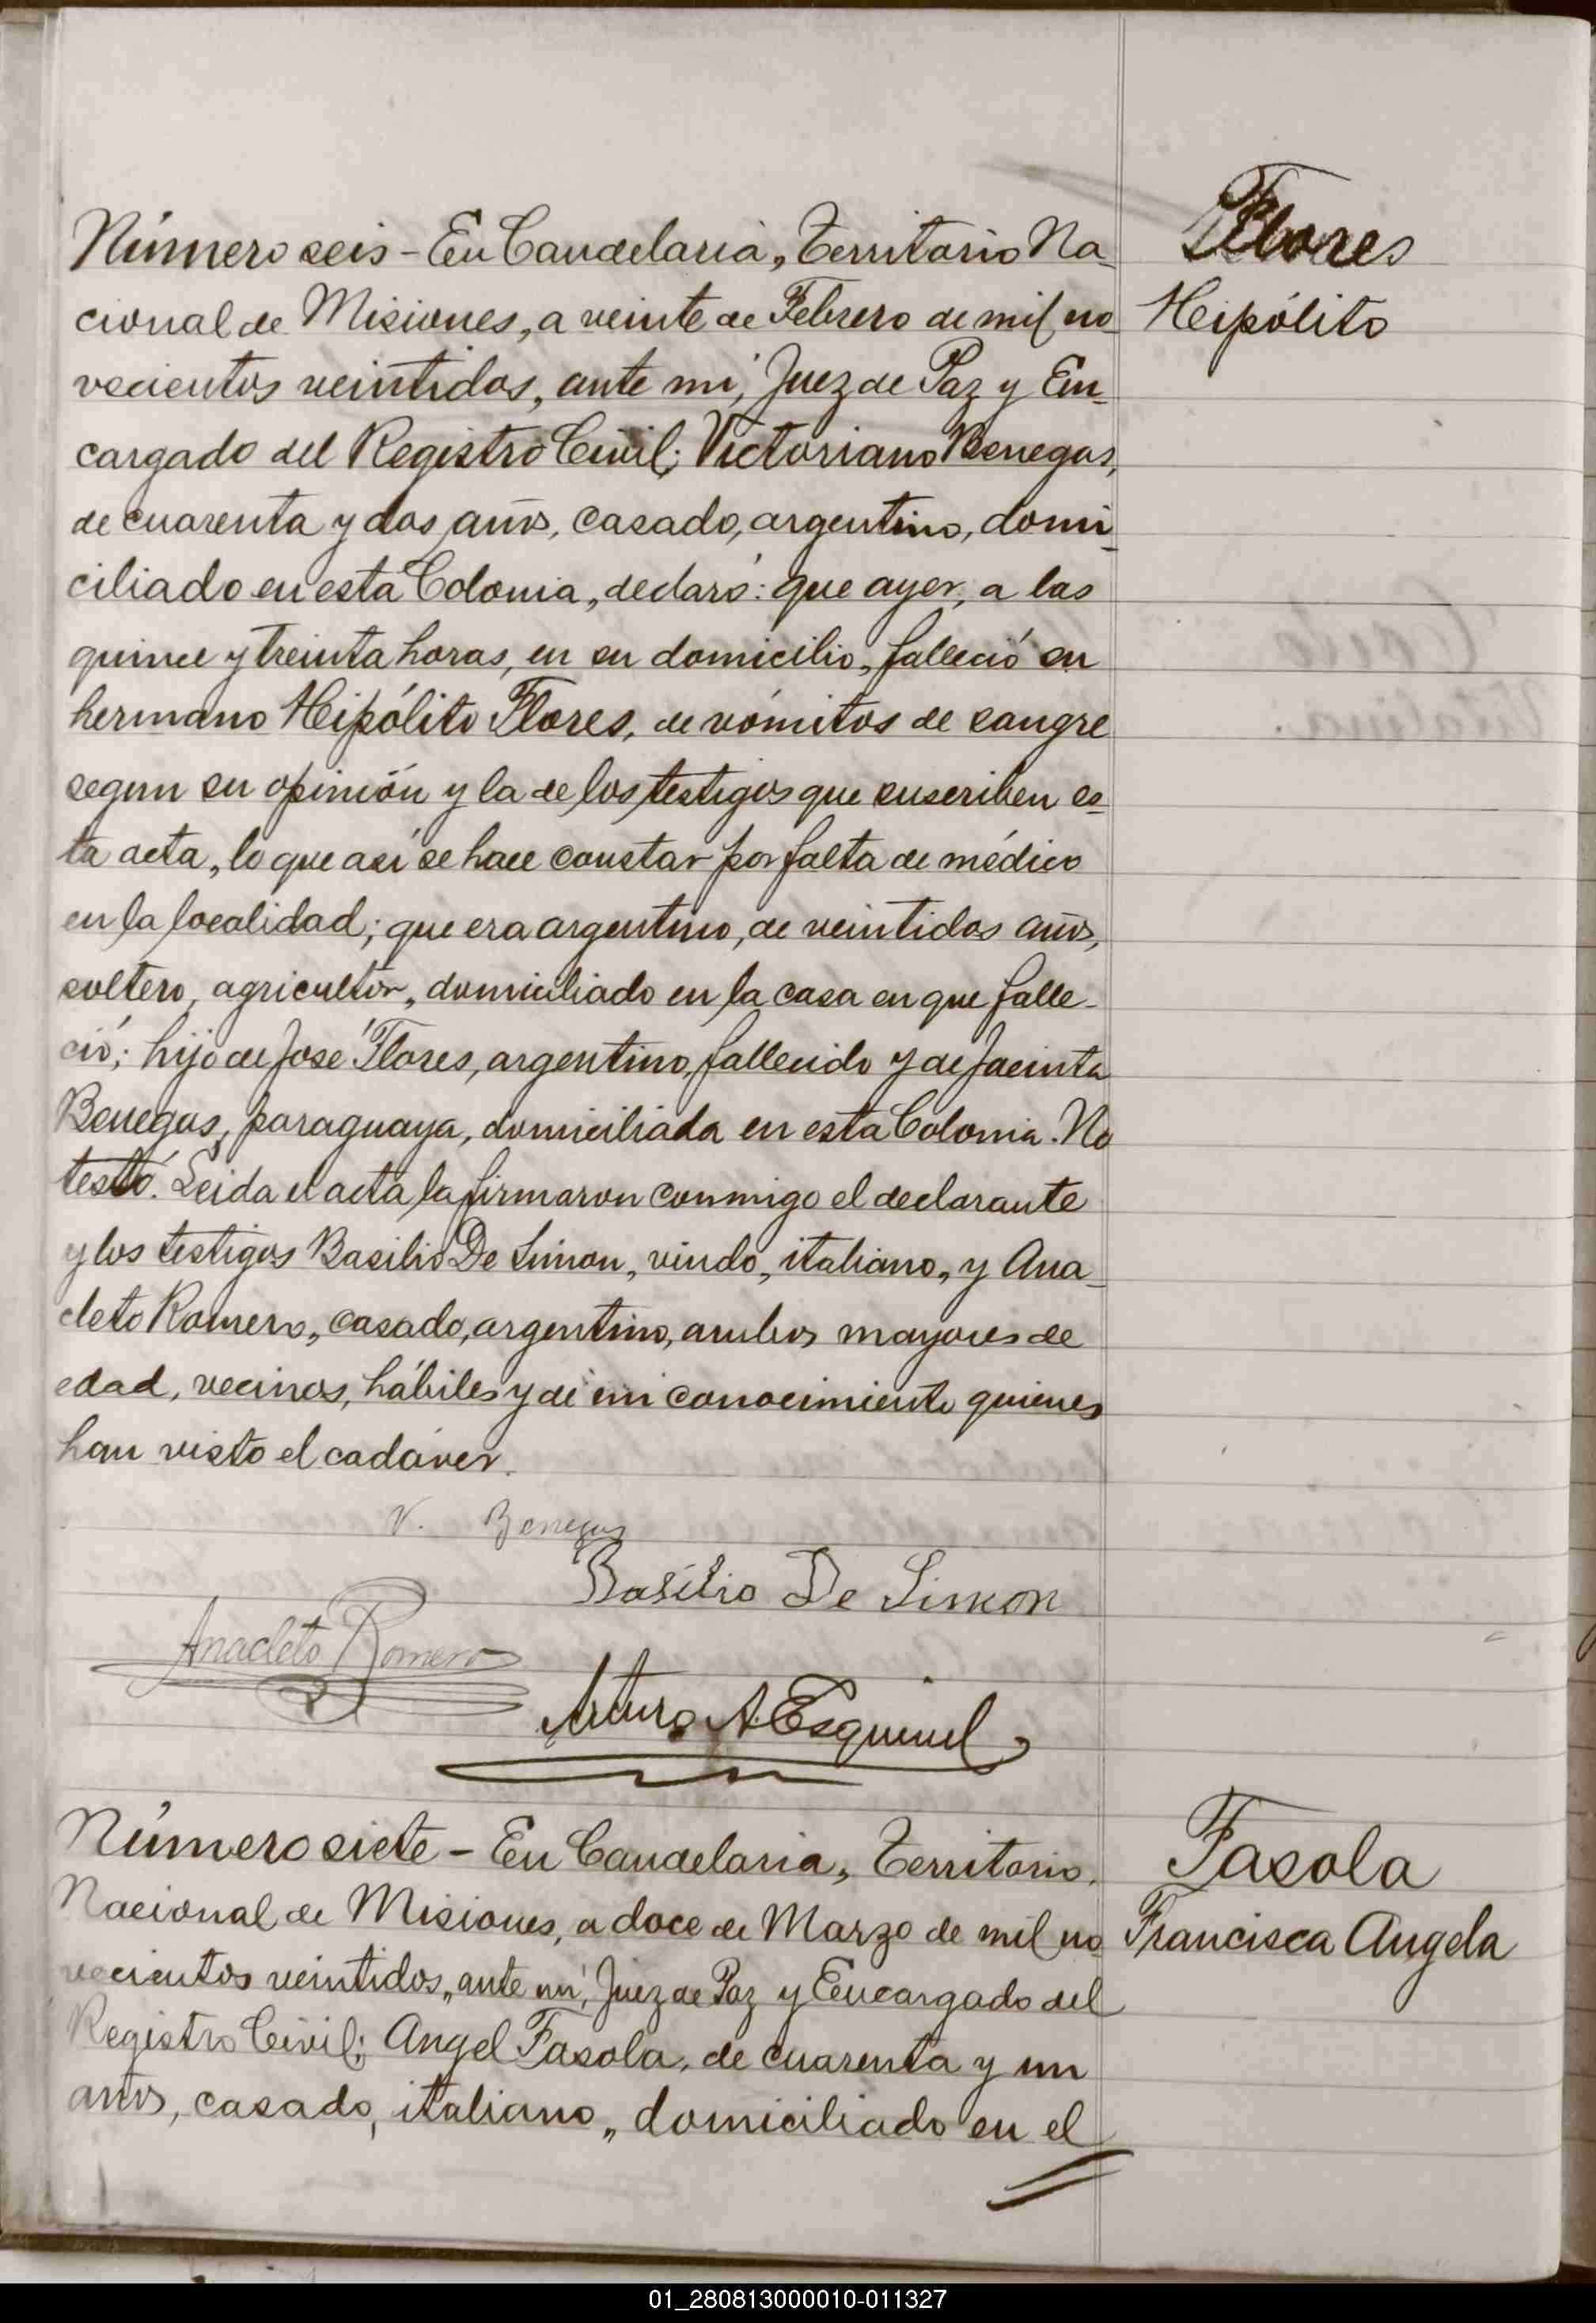 Flores
Hipólito
Número seis - En Candelaria, Territorio Na-
cional de Misiones, a veinte de Febrero de mil no-
vecientos veintidos, ante mí, Juez de Paz y En-
cargado del Registro Civil; Victoriano Benegas,
de cuarenta y dos años, casado, argentino, domi-
ciliado en esta Colonia, declaró: que ayer, a las
quince y treinta horas, en su domicilio, falleció su
hermano Hipólito Flores, de vómitos de sangre
segun su opinión y la de los testigos que suscriben es-
ta acta, lo que así se hace constar por falta de médico
en la localidad; que era argentino, de veintidos años,
soltero, agricultor, domiciliado en la casa en que falle-
ció; hijo de José Flores, argentino, fallecido y de Jacinta
Benegas, paraguaya, domiciliada en esta Colonia. No
testó. Leida el acta la firmaron conmigo el declarante
y los testigos Basilio De Simon, viudo, italiano, y Ana-
cleto Romero, casado, argentino, ambos mayores de
edad, vecinos, hábiles y de mi conocimiento quienes
han visto el cadáver.
V. Benegas
Basilio De Simon
Anacleto Romero
Arturo A. Esquivel
Fasola
Francisca Angela
Número siete - En Candelaria, Territorio
Nacional de Misiones, a doce de Marzo de mil no-
vecientos veintidos, ante mí, Juez de Paz y Encargado del
Registro Civil; Angel Fasola, de cuarenta y un
años, casado, italiano, domiciliado en el
01_280813000010-011327